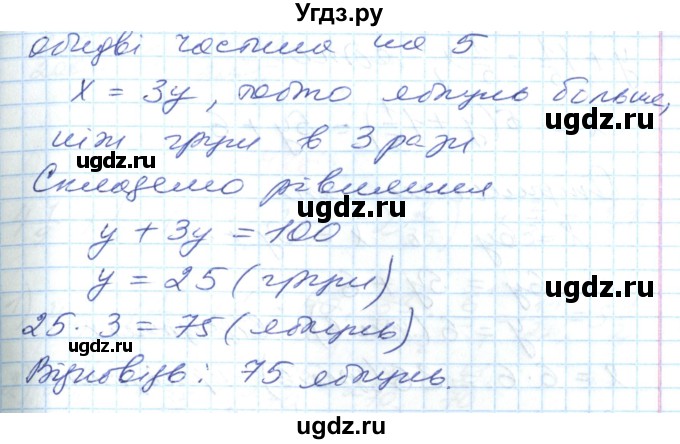 УгДз.ру
обидві частина на 5
x = 3y, тобто яблуль більше,
ugdz.ru
ніж груш в 3 рази
ugdz.ru
ugdz.ru
Складемо рівняння
ugdz.ru
y + 3y = 100
ugdz.ru
y = 25 (груш)
25 · 3 = 75 (яблуль)
ugdz.ru
ugdz.ru
Відповідь: 75 яблуль.